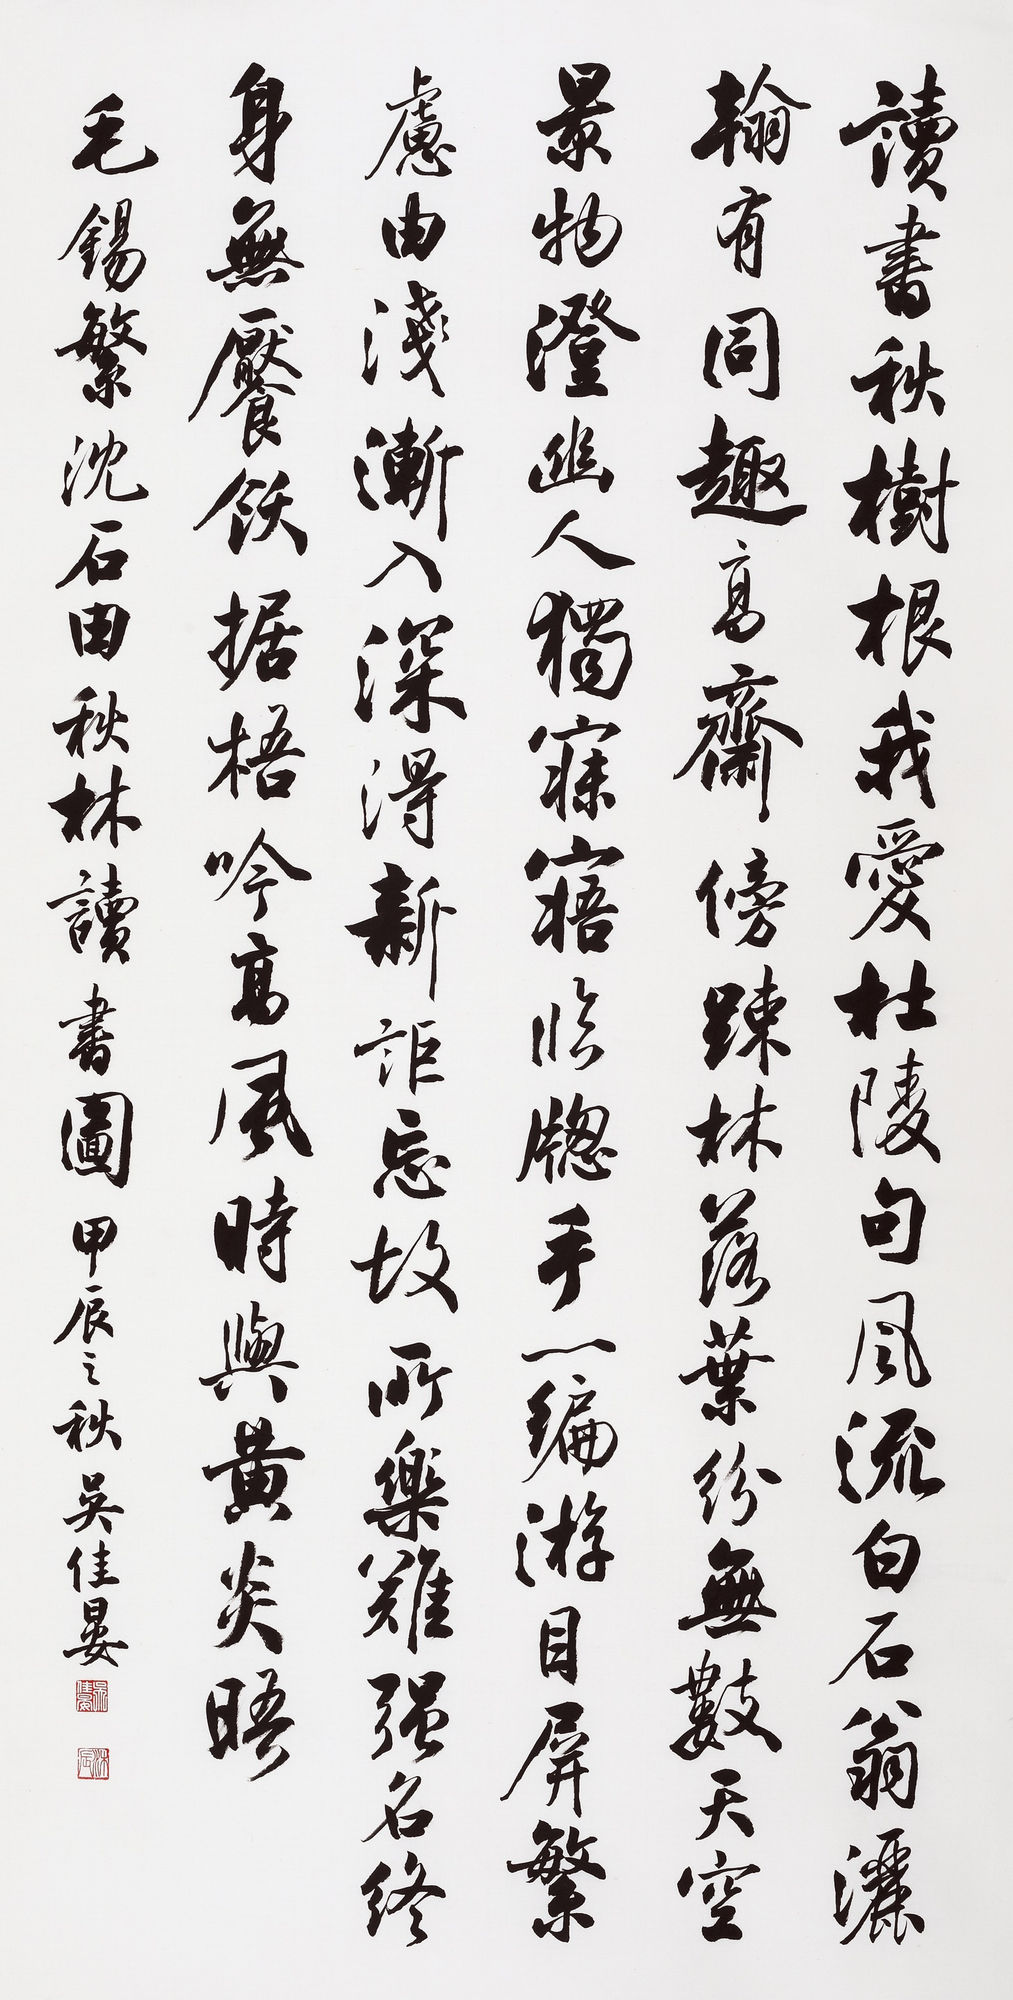 讀書秋樹根我愛杜陵句風流白石翁灑
翰有同趣高齋傍踈林落葉紛無數天空
景物澄幽人獨寐寤臨牕手一編游目屏繁
慮由淺漸入深得新詎忘故所樂難强名終
身無饜飫据梧吟高風時與黃炎晤
毛錫繁沈石田秋林讀書圖甲辰之秋吳佳晏